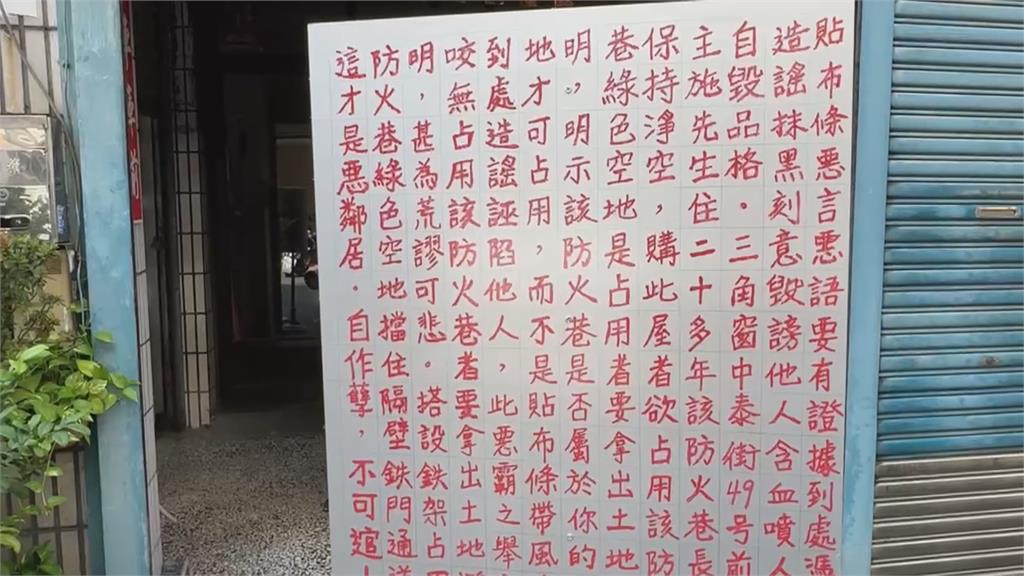 貼布條惡言惡語要有證據到處
造謠抹黑刻意毀謗他人含血噴人
自毀品格。三角窗中泰街49号前
主施先生住二十多年該防火巷長
保持淨空，購此屋者欲占用該防
巷綠色空地是占用者要拿出土地
明，明示該防火巷是否屬於你的
地才可占用，而不是貼布條帶風
到處造謠誣陷他人，此惡霸之舉
咬無占用該防火巷者要拿出土地
明，甚為荒謬可悲。搭設鉄架占
防火巷綠色空地擋住隔壁鉄門通
這才是惡鄰居．自作孽，不可逭